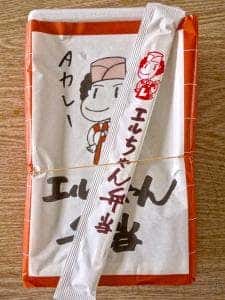 Aカレー
エルちゃん
弁当
エルちゃん弁当